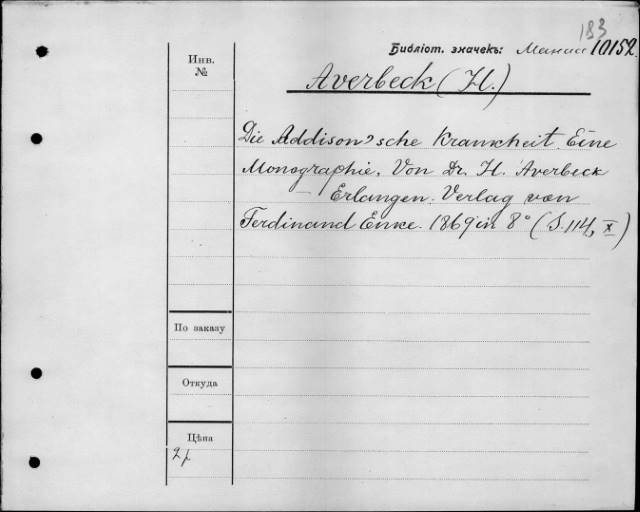 183
Инв.
№
Библіот. значекъ: Мансал 10152.
Averbeck (H.)
Die Addison'sche Krankheit. Eine
Monographie. Von Dr. H. Averbeck
Erlangen. Verlag von
Ferdinand Enke. 1869 in 8° (S. 114, X)
По заказу
Откуда
Цѣна
2 р